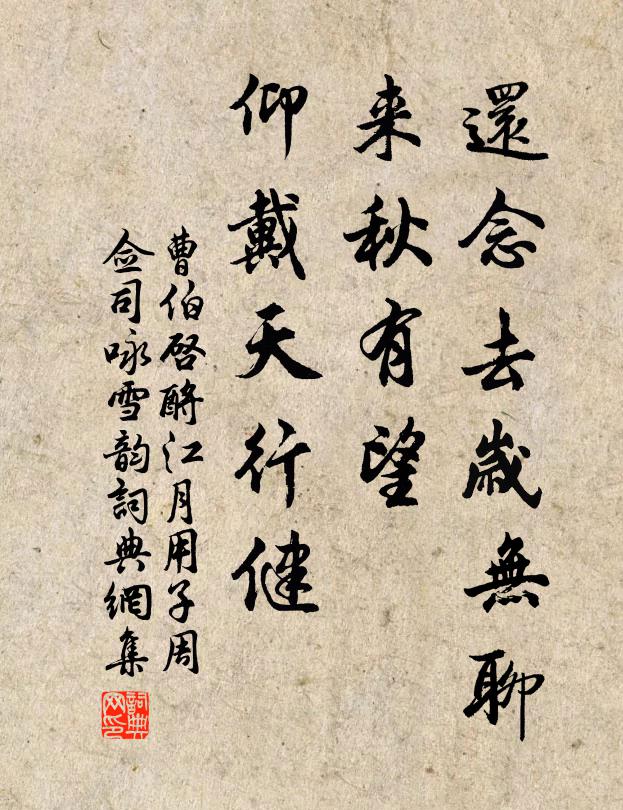 還念去歲無聊
来秋有望
仰戴天行健
曹伯啓酹江月用子周
僉司咏雪韵詞典網集
詞典网印